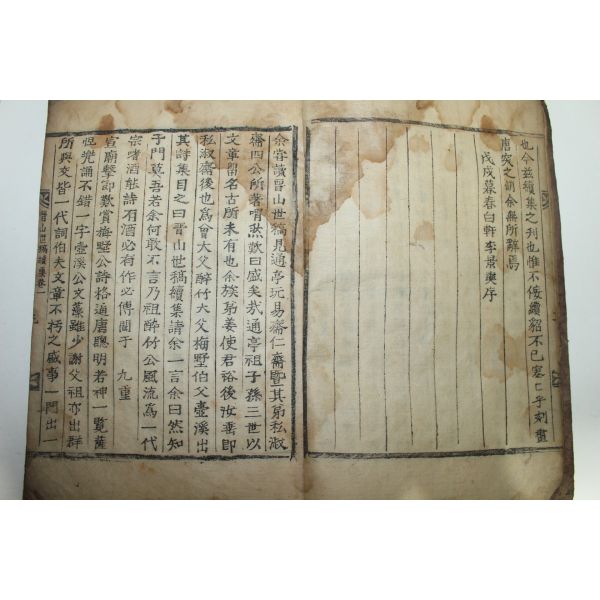 也今茲續集之刊也惟不佞續貂不已寔亡乎刻畫
唐突之誚余無所辭焉
戊戌暮春白軒李景奭序
余嘗讀晉山世稿見通亭玩易齋仁齋曁其弟私淑
齋四公所著喟然歎曰盛矣哉通亭祖子孫三世以
文章畱名古所未有也余族弟姜使君裕後汝垂卽
私淑齋後也爲曾大父醉竹大父梅墅伯父壺溪出
其詩集目之曰晉山世稿續集請余一言余曰然知
子門莫吾若余何敢不言乃祖醉竹公風流爲一代
宗嗜酒能詩有酒必有作必傳聞于 九重
宣廟擊節歎賞梅墅公詩格逼唐聰明若神一覽薩
恆兜誦不錯一字壺溪公文藻雖少謝父祖亦出群
所與交皆一代詞伯夫文章不朽之盛事一門出一
晉山世稿續集卷一